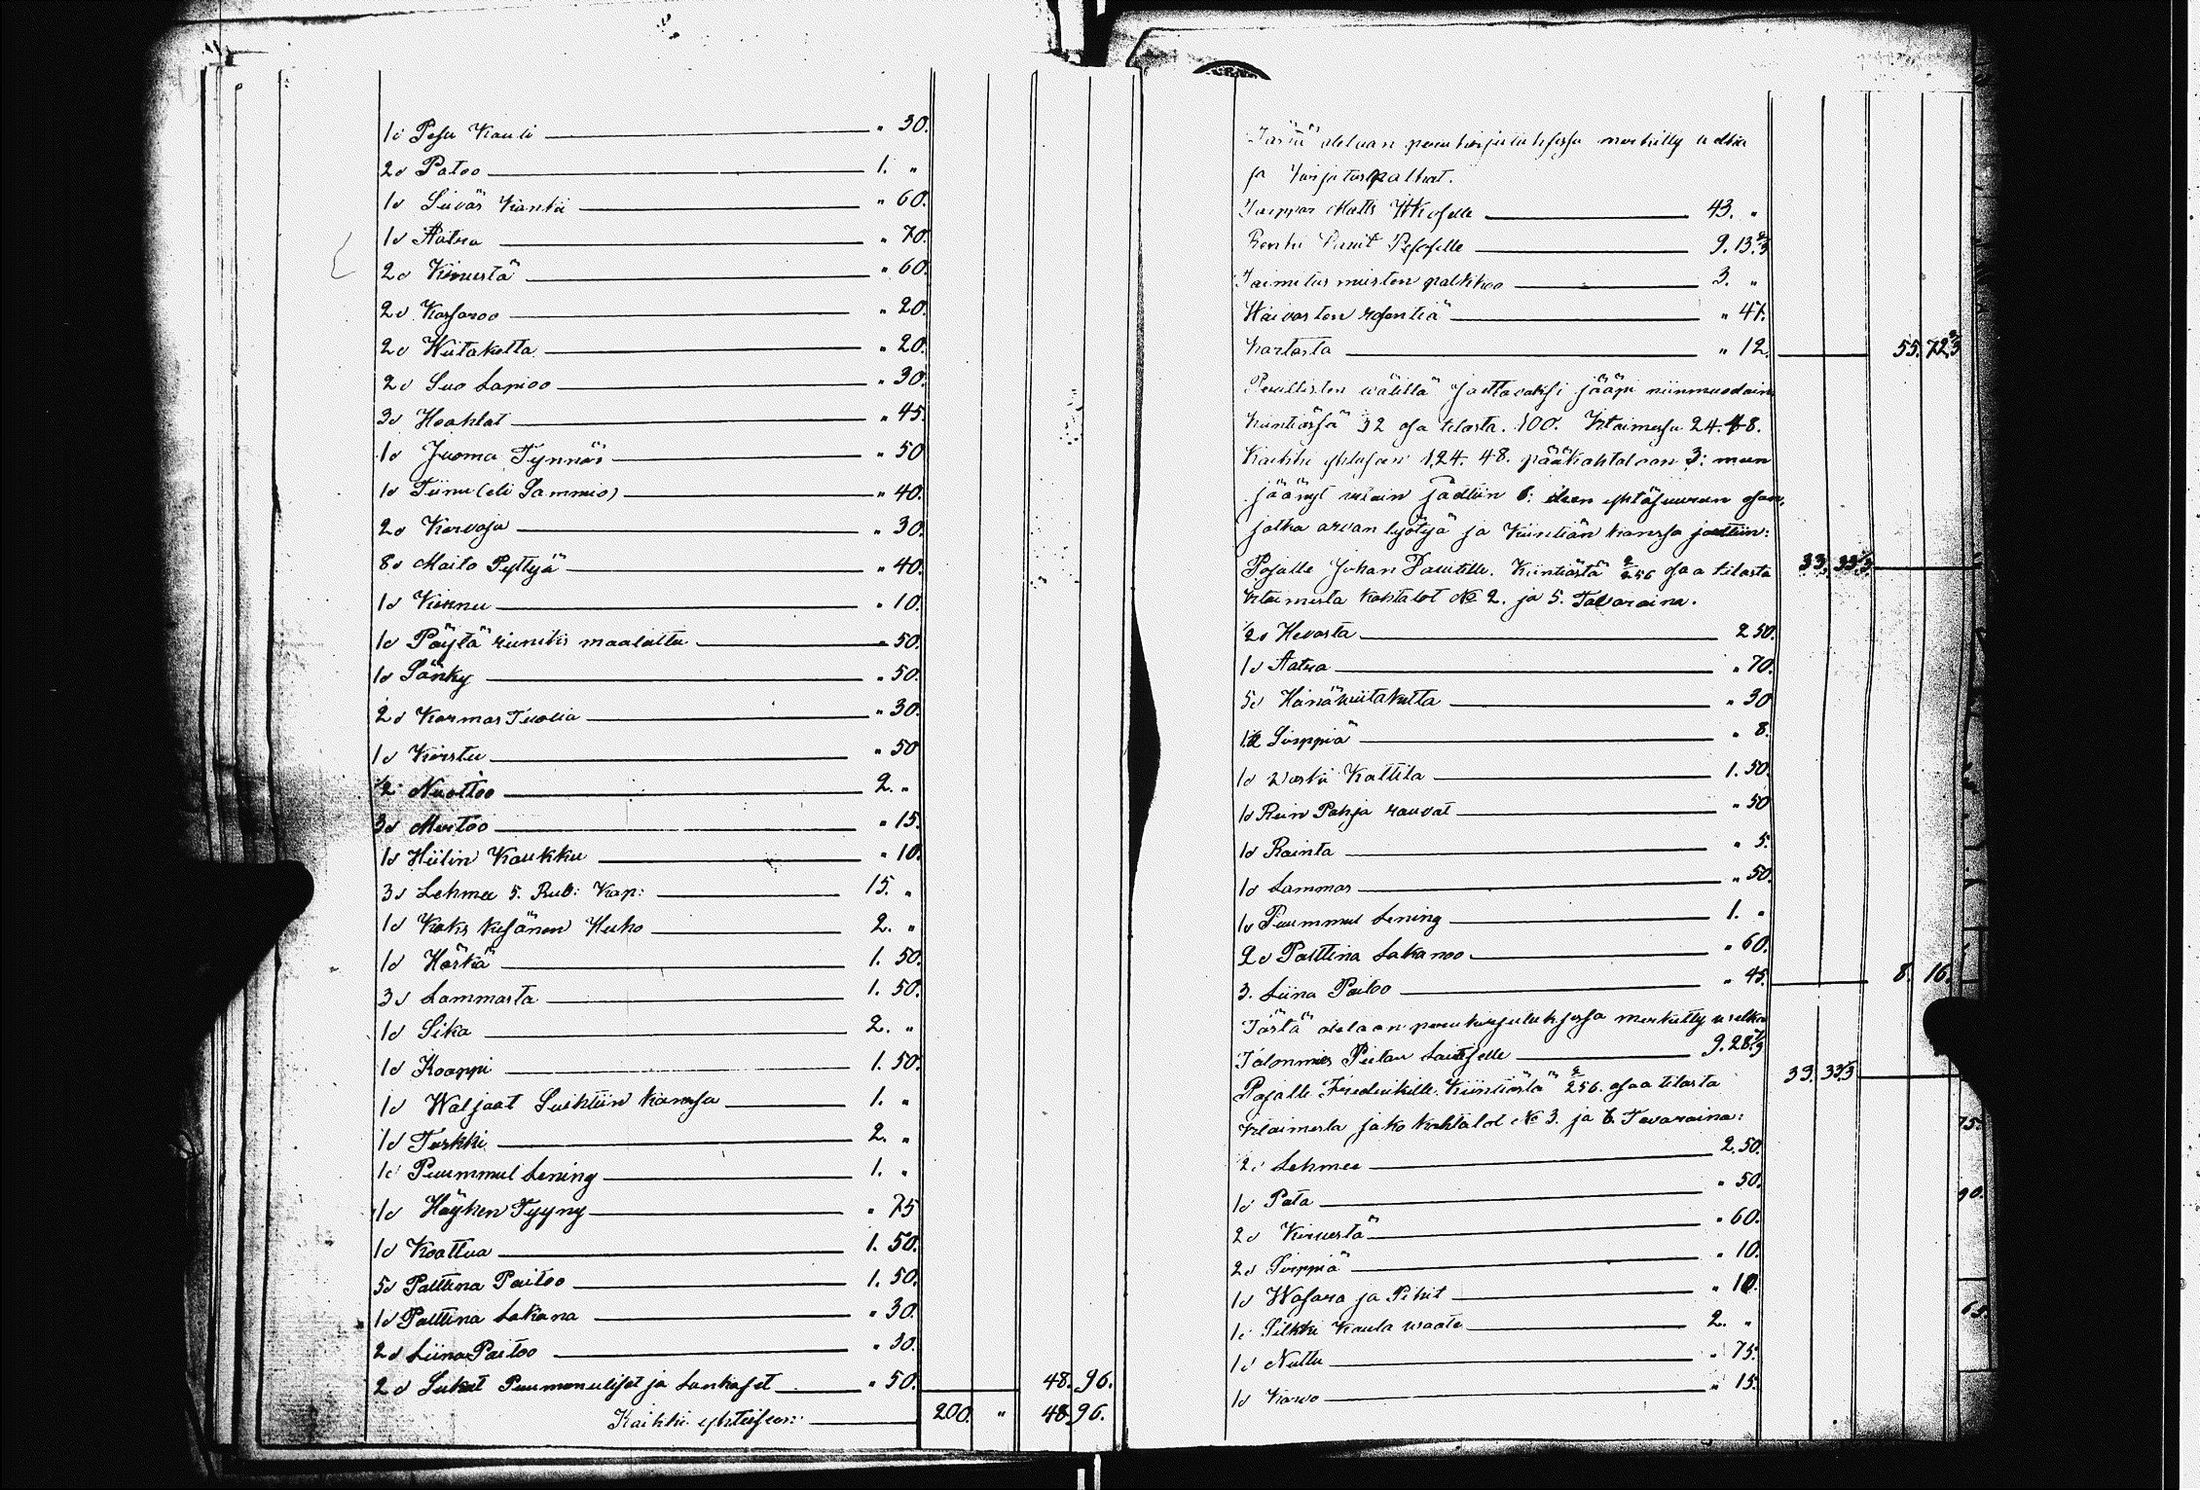 1 d Pesu Kanti — " 30.
2 d Patoo — 1. "
1 d Siivär Kantii — " 60.
1 d Aatra — " 70.
2 d Kirvestä — " 60.
2 d Kasaroo — " 20.
2 d Wiitaketta — " 20.
2 d Suo Lapioo — " 30.
3 d Haahlat — " 45.
1 d Juoma Tynnör — " 50
1 d Tiinu (eli Sammio) — " 40.
2 d Korvoja — " 30.
8 d Maito Pyttyjä — " 40.
1 d Kirnu — " 10.
1 d Pöytä maalattu — " 50.
1 d Sänky — " 50.
2 d Karmas Tuolia — " 30.
1 d Kirstu — " 50
1/2 Nuottoo — 2. "
3 d Mertoo — " 15.
1 d Hiilin Koukku — " 10.
3 d Lehmee 5. Rub: Kap: — 15. "
1 d Kaks kesänen Hieho — 2. "
1 d Härkä — 1. 50.
3 d Lammasta — 1. 50.
1 d Sika — 2. "
1 d Kaappi — 1. 50.
1 d Waljaat Suihtiin kanssa — 1. "
1 d Turkki — 2. "
1 d Puummul Lening — 1. "
1 d Höyhen Tyyny — " 75
1 d Koattua — 1. 50.
5 d Palttina Paitoo — 1. 50.
1 d Palttina Lakana — " 30.
2 d Liina Paitoo — " 30.
2 d Sukat Puumenuliset ja Lankaset — " 50. 48. 96.
Kaikki yhteiseen: — 200. " 48. 96.
Tästä otetaan perukirjutuksessa merkitty velka
ja kirjotuspalkat.
Matts — 43. "
9. 13 2/3
Toimitus miesten palkkoo — 3. "
Waivasten rosentiä — " 47.
Kartasta — " 12. — 55. 72 2/3
Perillisten wälillä jaettavaksi jääpi niinmuodoin
Kiintiässä 32 osa tilasta. 100. Irtaimessa 24. 48.
Kaikki yhteiseen 124. 48. pääkohtaloon 3: meen
jäänyt näin jaettiin 6: teen yhtäsuureen osan,
jotka arvan lyötyä ja Kiintiän kanssa jaettiin:
Pojalle Johan Davitille. Kiintiästä 2/256 osaa tilasta 33. 33 1/3
Irtaimesta kohtalot No 2. ja 5. Tavaraina.
1/2 d Hevosta — 2 50.
1 d Aatra — " 70.
5 d Hänäwiitaketta — " 30
12 Sirppiä — " 8.
1 d Vaski Kattila — 1. 50.
1 d Riin Pohja rauvat — " 50
1 d Rainta — " 5.
1 d Lammas — " 50.
1 d Puummul Lening — 1. "
2 d Palttina Lakanoo — " 60.
3. Liina Paitoo — " 45. — 8. 16.
Tästä otetaan perukirjutuksessa merkitty velka
Talonmies Pietar — 9. 28 7/9
Pojalle Fredrikille. Kiintiästä 2/256. osaa tilasta 33. 33 1/3
Irtaimesta jako kohtalot No 3. ja 6. Tavaraina:
2 d Lehmee — 2. 50.
1 d Pata — " 50.
2 d Kirvestä — " 60.
2 d Sirppiä — " 10.
1 d Wasara ja Pihit — " 10.
1 d Silkki Kaula waate — 2. "
1 d Nuttu — " 75.
1 d — " 15.